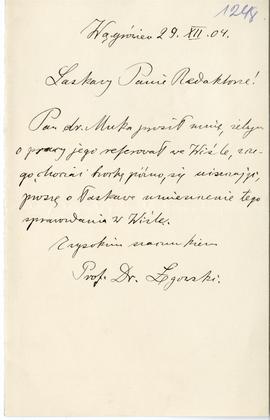 124
Wągrówiec 29. XII. 04.
Łaskawy Panie Redaktorze!
Pan dr. Muka prosił mnię, żebym
o pracy jego referował we Wiśle, cze-
go chociaż trochę późno, się uiszczając,
proszę o łaskawe umieszczenie tego
sprawozdania w Wiśle.
Z wysokim szacunkiem
Prof. Dr. Łgowski.